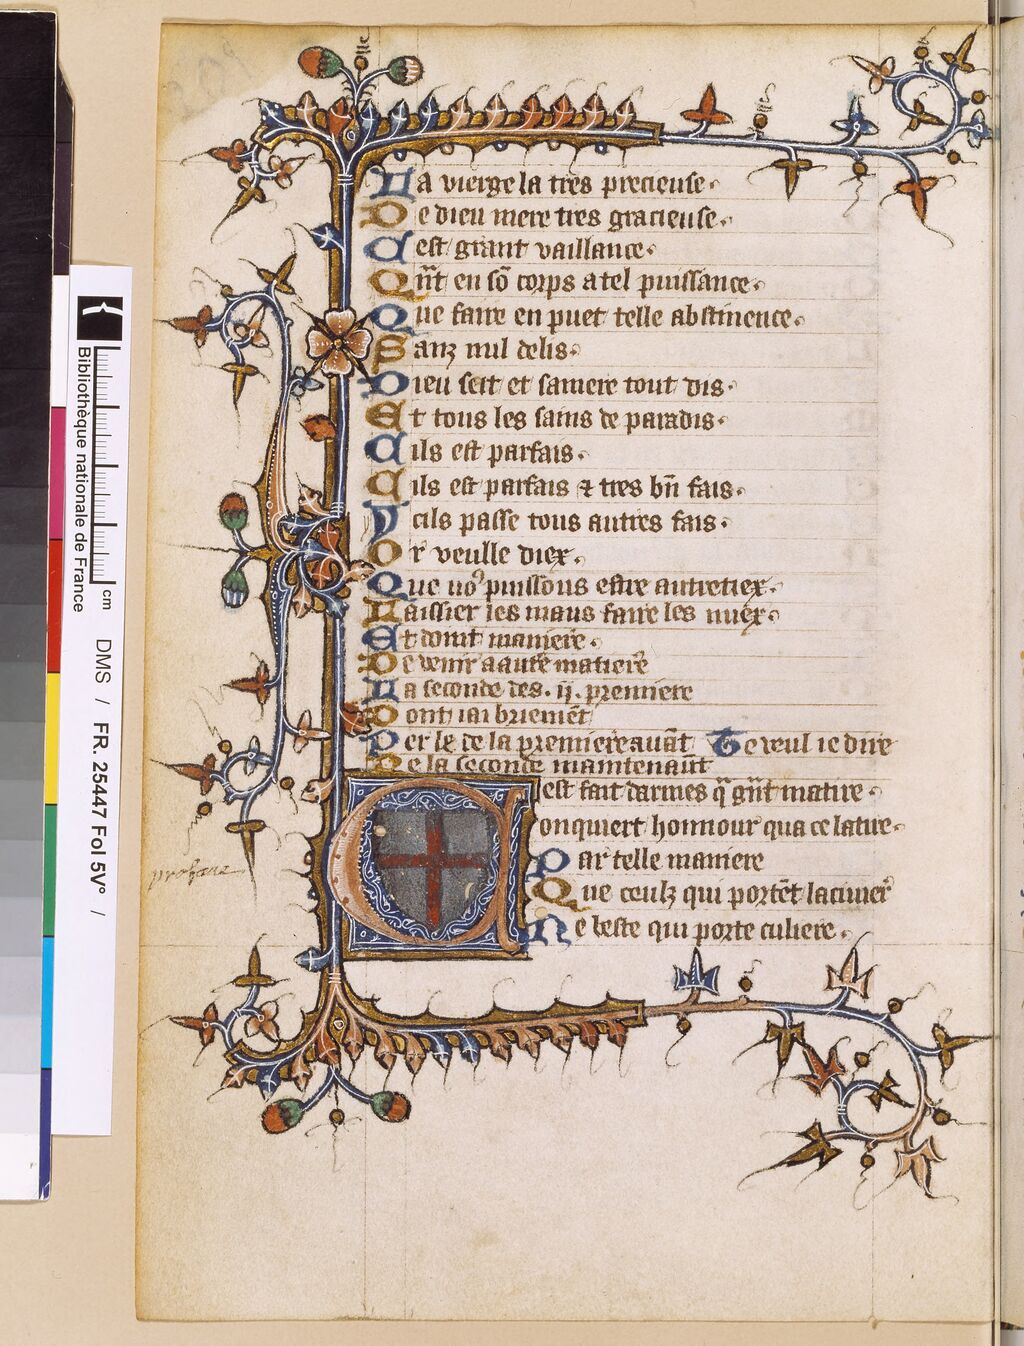 La vierge la tres precieuse.
De dieu mere tres gracieuse.
Cest grant vaillance.
Qn̄t en sō corps a tel puissance.
Que faire en puet telle abstinence.
Sanz nul delis.
Dieu sert et sa mere tout dis.
Et tous les sains de paradis.
Cils est parfais.
Cils est parfais ⁊ tres bn̄ fais.
Y cils passe tous autres fais.
Or veulle diex.
Que noꝯ puissons estre autretiex.
Laissier les maus faire les miex.
Et doint maniere.
De venir a autē matiere
La seconde des .ij. premiere
Dont iai briemēt
Perle de la premiere auāt
Ce veul ie dire
De la seconde maintenant
Cest fait darmes q̄ gn̄t matire.
Conquiert honnour qua ce latire.
Par telle maniere
Que ceulz qui portēt la cuiuier̄
Ne beste qui porte culiere.
profane
Bibliothèque nationale de France
cm
DMS / FR. 25447 Fol 5V° /